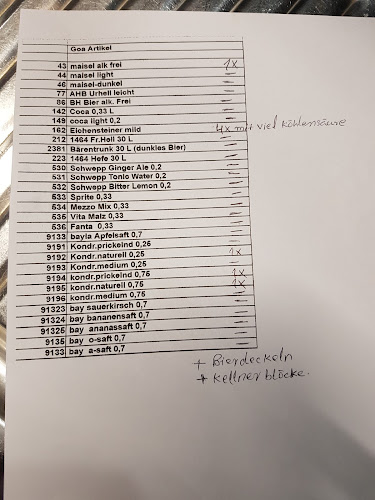 Goa Artikel
43 maisel alk frei 1x
44 maisel light —
46 maisel-dunkel —
77 AHB Urhell leicht —
86 BH Bier alk. Frei —
142 Coca 0,33 L —
149 coca light 0,2 —
162 Eichensteiner mild 4x mit viel Kohlensäure
212 1464 Fr.Hell 30 L —
2381 Bärentrunk 30 L (dunkles Bier) —
223 1464 Hefe 30 L —
530 Schwepp Ginger Ale 0,2 —
531 Schwepp Tonic Water 0,2 —
532 Schwepp Bitter Lemon 0,2 —
533 Sprite 0,33 —
534 Mezzo Mix 0,33 —
535 Vita Malz 0,33 —
536 Fanta 0,33 —
9133 bayla Apfelsaft 0,7 —
9191 Kondr.prickelnd 0,25 —
9192 Kondr.naturell 0,25 1x
9193 Kondr.medium 0,25 —
9194 kondr.prickelnd 0,75 1x
9195 kondr.naturell 0,75 1x
9196 kondr.medium 0,75 —
91323 bay sauerkirsch 0,7 —
91324 bay bananensaft 0,7 —
91325 bay ananassaft 0,7 —
9135 bay o-saft 0,7 —
9133 bay a-saft 0,7 —
+ Bierdeckeln
+ Kellnerblöcke.